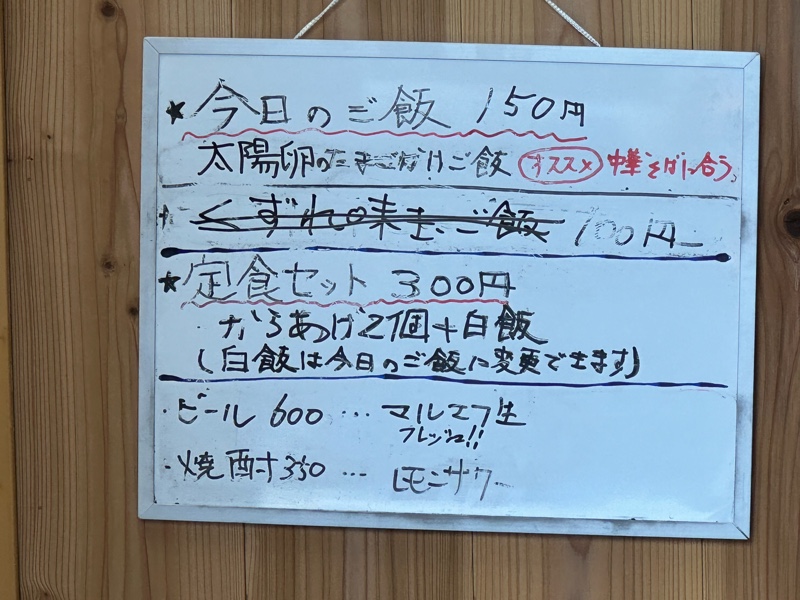 ★今日のご飯 150円
太陽卵のたまごかけご飯 オススメ 中華そばに合う。
くずれ味玉ご飯 100円
★定食セット 300円
・からあげ2個+白飯
(白飯は今日のご飯に変更できます)
・ビール 600 … マルエフ生
フレッシュ!!
・焼酎 350 … レモンサワー